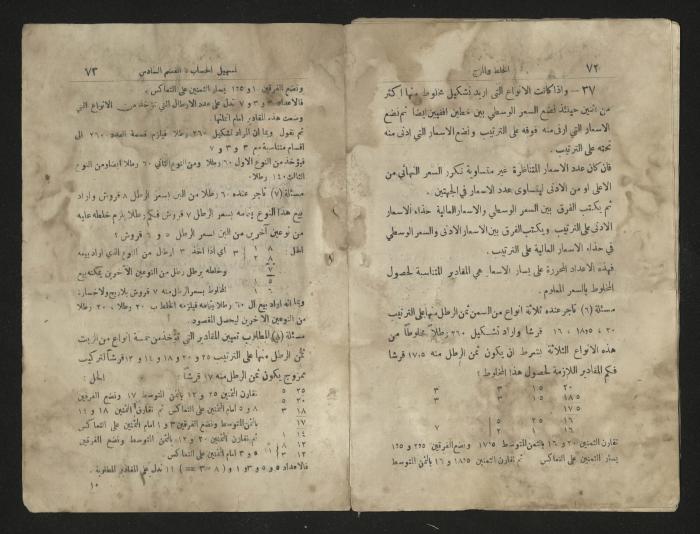 ٧٢
الخلط والمزج
٣٧ – واذا كانت الانواع التى اريد تشكيل مخلوط منها اكثر
من اثنين حينئذ نضع السعر الوسطي بين خطين افقيين ايضا ثم نضع
الاسعار التى ارفى منه فوقه على الترتيب ونضع الاسعار التى ادنى منه
تحته على الترتيب .
فان كان عدد الاسعار المتناظرة غير متساوية نكرر السعر النهائي من
الاعلى او من الادنى ليتساوى عدد الاسعار في الجهتين .
ثم يكتب الفرق بين السعر الوسطي والاسعار العالية حذاء الاسعار
الادنى على الترتيب ويكتب الفرق بين الاسعار الادنى والسعر الوسطي
في حذاء الاسعار العالية على الترتيب .
فهذه الاعداد المحررة على يسار الاسعار هي المقادير المتناسبة لحصول
المخلوط بالسعر المعلوم .
مسئلة (٦) تاجر عنده ثلاثة انواع من السمن ثمن الرطل منها على الترتيب
٢٠ ، ١٨٫٥ ، ١٦ فرشا واراد تشكيل ٢٦٠ رطلاً مخلوطا من
هذه الانواع الثلاثة بشرط ان يكون ثمن الرطل منه ١٧٫٥ قرشا
فكم المقادير اللازمة لحصول هذا المخلوط ؟
٢٠ ١٫٥ ٣ ٣
١٨٫٥ ١٫٥ ٣ ٣
١٧٫٥
١٦ ٢٫٥ ٥
١٦ ١ ٢ ٧
نقارن الثمنين ٢٠ و ١٦ بالثمن المتوسط ١٧٫٥ ونضع الفرقين ٢٫٥ و ١٫٥
يسار الثمنين على التعاكس ثم نقارن الثمنين ١٨٫٥ و ١٦ بالثمن المتوسط
تسهيل الحساب : القسم السادس
٧٣
ونضع الفرقين ١ و ١٫٥ يسار الثمنين على التعاكس .
فالاعداد ٣ و ٣ و ٧ تدل على عدد الارطال التى تؤخذ من الانواع التي
وضعت هذه المقادير امام اثمانها .
ثم نقول وبما ان المراد تشكيل ٢٦٠ رطلا فيلزم قسمة العدد ٢٦٠ الى
اقسام متناسبة مع ٣ و ٣ و ٧
فيؤخذ من النوع الاول ٦٠ رطلا ومن النوع الثاني ٦٠ رطلا ايضا ومن النوع
الثالث ١٤٠ رطلا .
مسئلة (٧) تاجر عنده ٦٠ رطلا من البن بسعر الرطل ٨ قروش واراد
بيع هذا النوع بتمامه بسعر الرطل ٧ قروش فكم رطلا يلزم خلطه عليه
من نوعين آخرين من البن بسعر الرطل ٥ و ٦ قروش ؟
الحل : ٨ ١ ٣ اي اذا اخذ ٣ ارطال من النوع المراد بيعه
٨ ٢
٧ وخلطه برطل رطل من النوعين الآخرين يمكنه بيع
٦ ١
٥ ١ المخلوط بسعر الرطل منه ٧ قروش بلا ربح ولا خسارة.
وبما انه اراد بيع ال ٦٠ رطلا بتمامه فيلزمه الخلط ب ٢٠ رطلا ، ٢٠ رطلا
من النوعين الآخرين ليحصل المقصود.
مسئلة (٨) المطلوب تعيين المقادير التي تؤخذ من خمسة انواع من الزيت
ثمن الرطل منها على الترتيب ٢٥ و ٢٠ و ١٨ و ١٤ و ١٢ قرشا لتركيب
ممزوج يكون ثمن الرطل منه ١٧ قرشا ؟ الحل :
٢٥ ٥ نقارن الثمنين ٢٥ و ١٢ بالثمن المتوسط ١٧ ونضع الفرقين
٢٠ ٥ ٨ و ٥ امام الثمنين على التعاكس ثم نقارن الثمنين ١٨ و ١٤
١٨ ٣
١٧ بالثمن المتوسط ونضع الفرقين ٣ و ١ امام الثمنين على التعاكس
١٤ ١ ثم نقارن الثمنين ٢٠ و ١٢ بالثمن المتوسط ونضع الفرقين
١٢ ٨
١٢ ٣ ١١ ٥ و ٣ امام الثمنين على التعاكس
فالاعداد ٥ و ٥ و ٣ و ١ و ( ٨ + ٣ = ) ١١ تدل على المقادير المطلوبة .
١٠